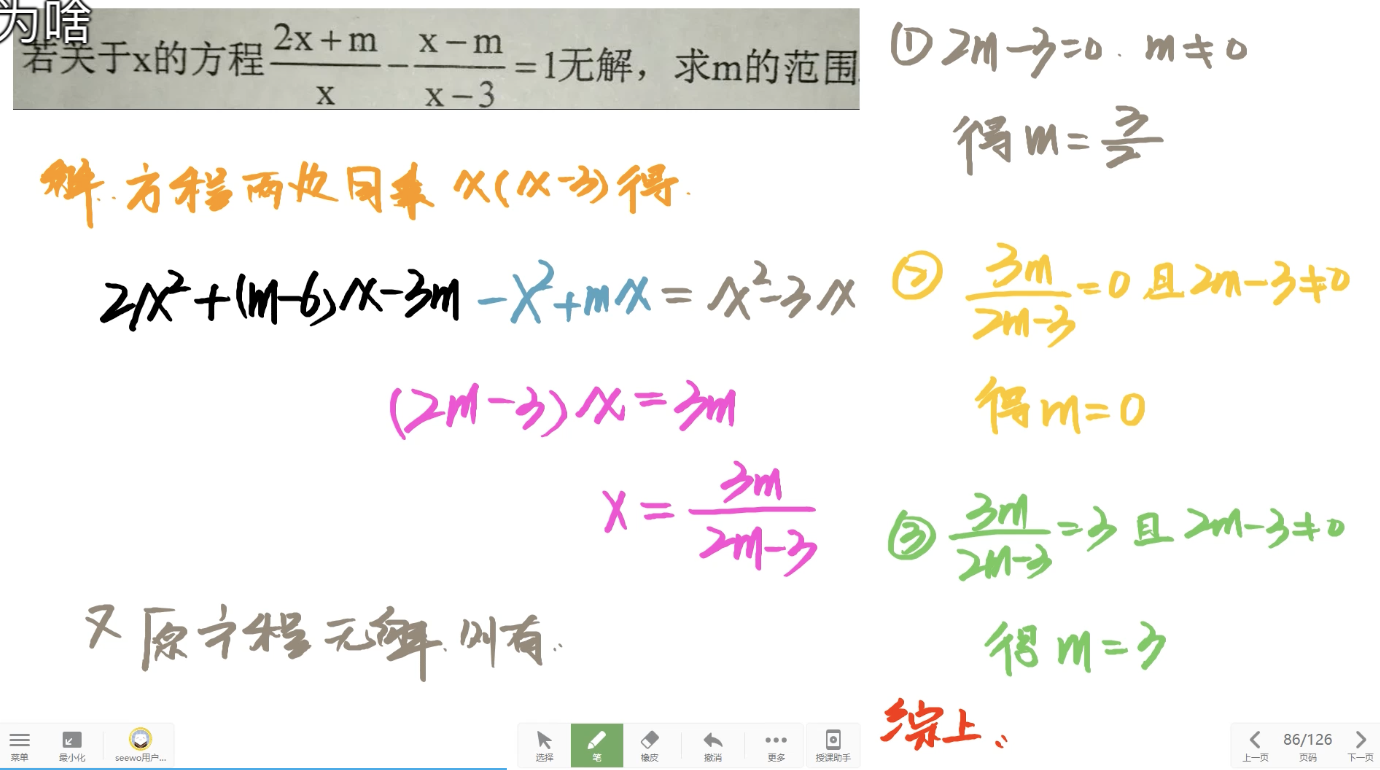 为啥
若关于x的方程 (2x+m)/x - (x-m)/(x-3) =1无解，求m的范围
解：方程两边同乘 x(x-3)得.
2x²+(m-6)x-3m-x²+mx=x²-3x
(2m-3)x=3m
x=3m/(2m-3)
又原方程无解.则有..
① 2m-3=0. m≠0
得m=3/2
② 3m/(2m-3)=0且2m-3≠0
得m=0
③ 3m/(2m-3)=3且2m-3≠0
得m=3
综上..
菜单
最小化
seewo用户...
选择
笔
橡皮
撤消
更多
授课助手
上一页
86/126
页码
下一页